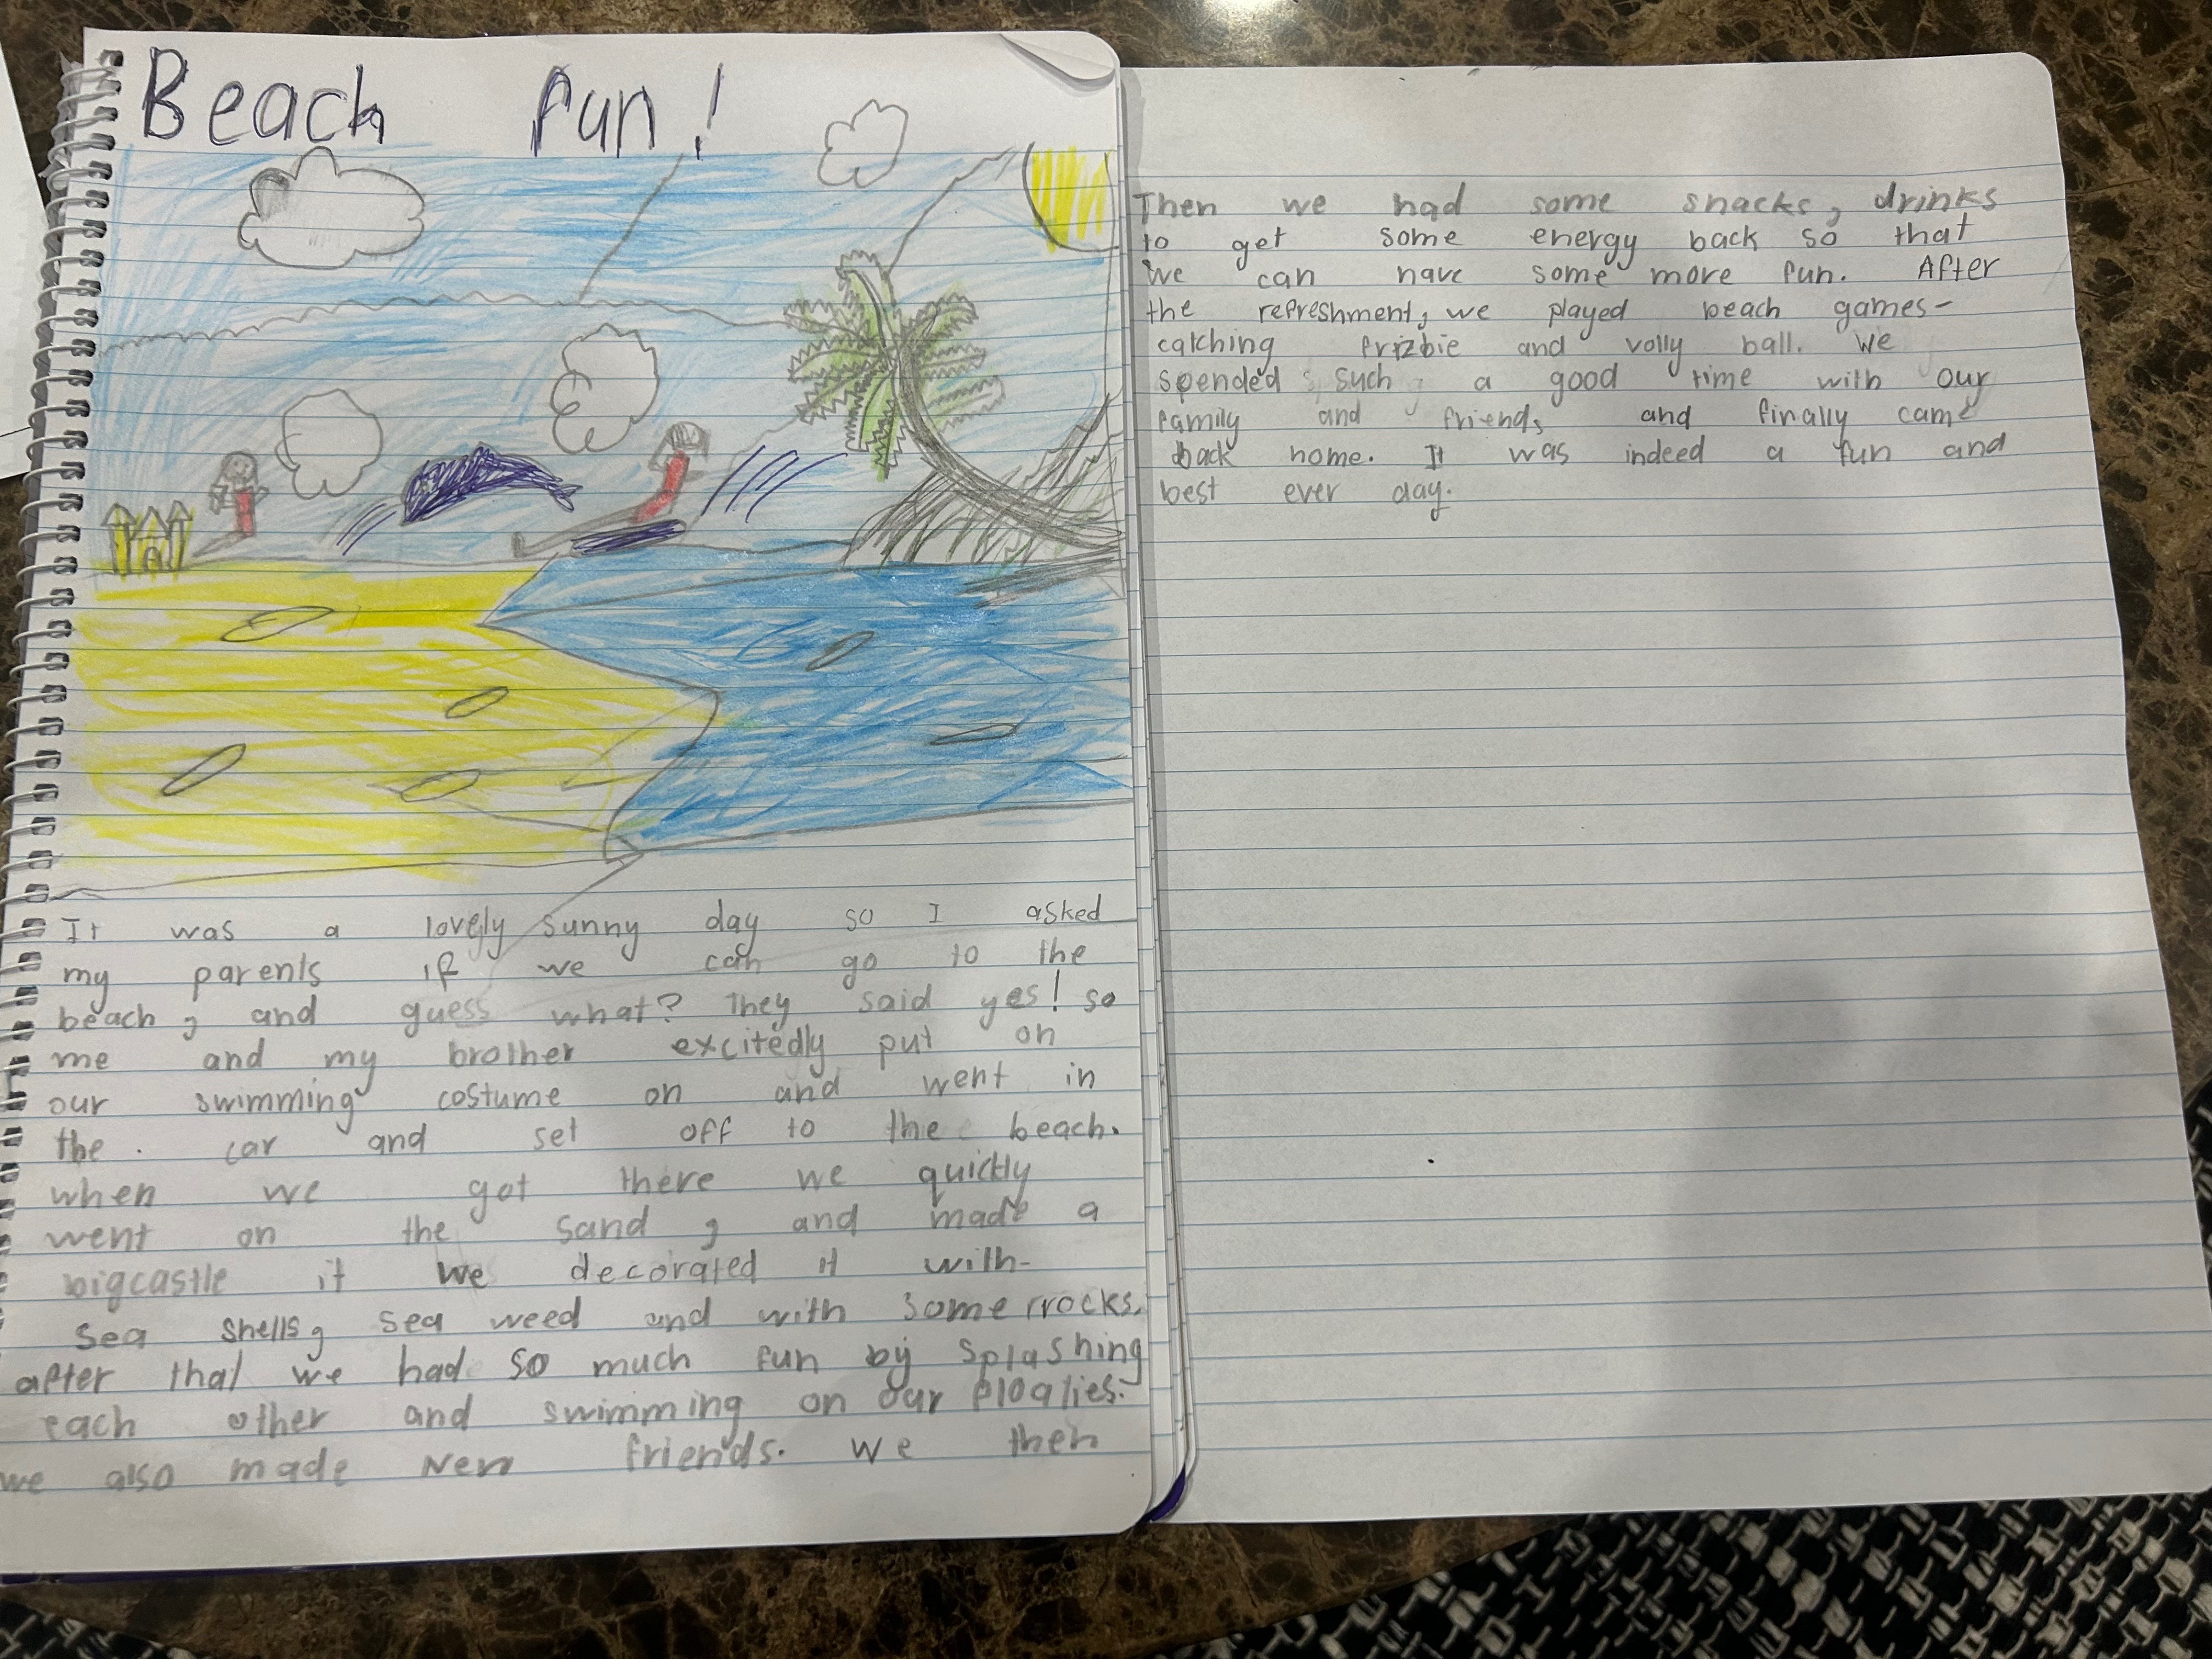 Beach fun!
It was a lovely sunny day so I asked
my parents if we can go to the
beach, and guess what? They said yes! so
me and my brother excitedly put on
our swimming costume on and went in
the car and set off to the beach.
when we got there we quickly
went on the sand, and made a
bigcastle it we decorated it with-
sea shells, sea weed and with some rocks.
after that we had so much fun by splashing
each other and swimming on our floaties.
we also made New friends. We then
Then we had some snacks, drinks
to get some energy back so that
we can have some more fun. After
the refreshment, we played beach games-
catching frizbie and volly ball. We
spended such a good time with our
family and friends and finally came
back home. It was indeed a fun and
best ever day.